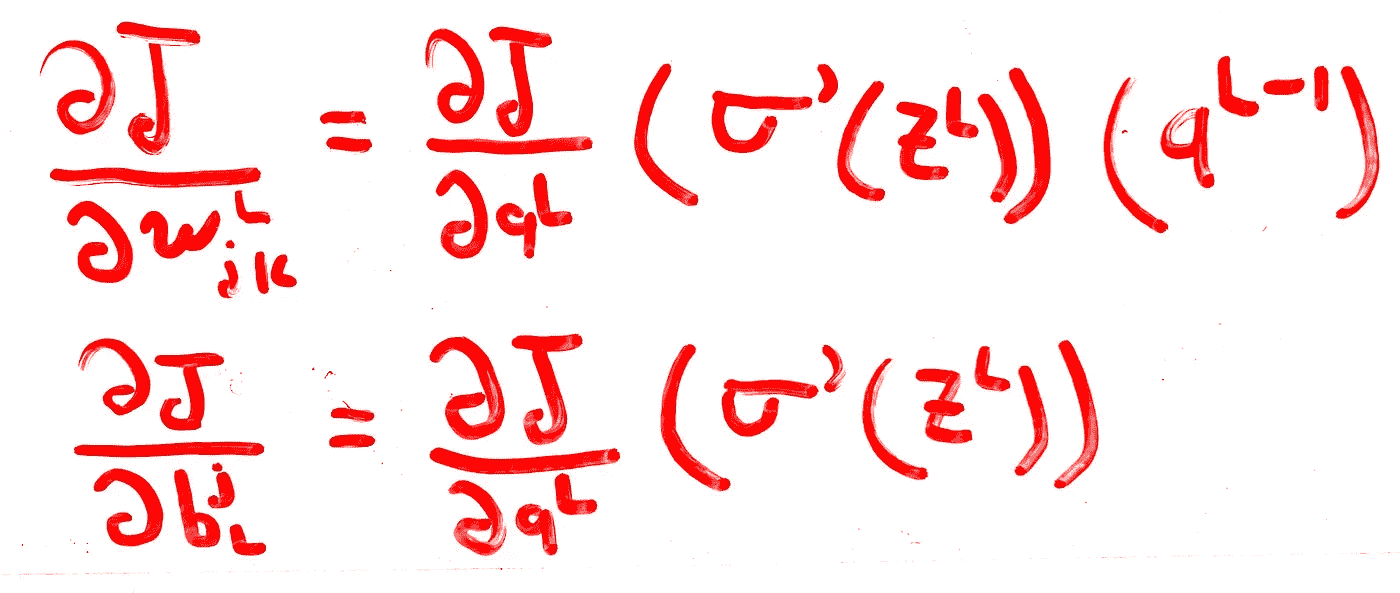 ∂J/∂w^L_{jk} = ∂J/∂a^L (σ'(z^L)) (a^{L-1})
∂J/∂b^j_L = ∂J/∂a^L (σ'(z^L))